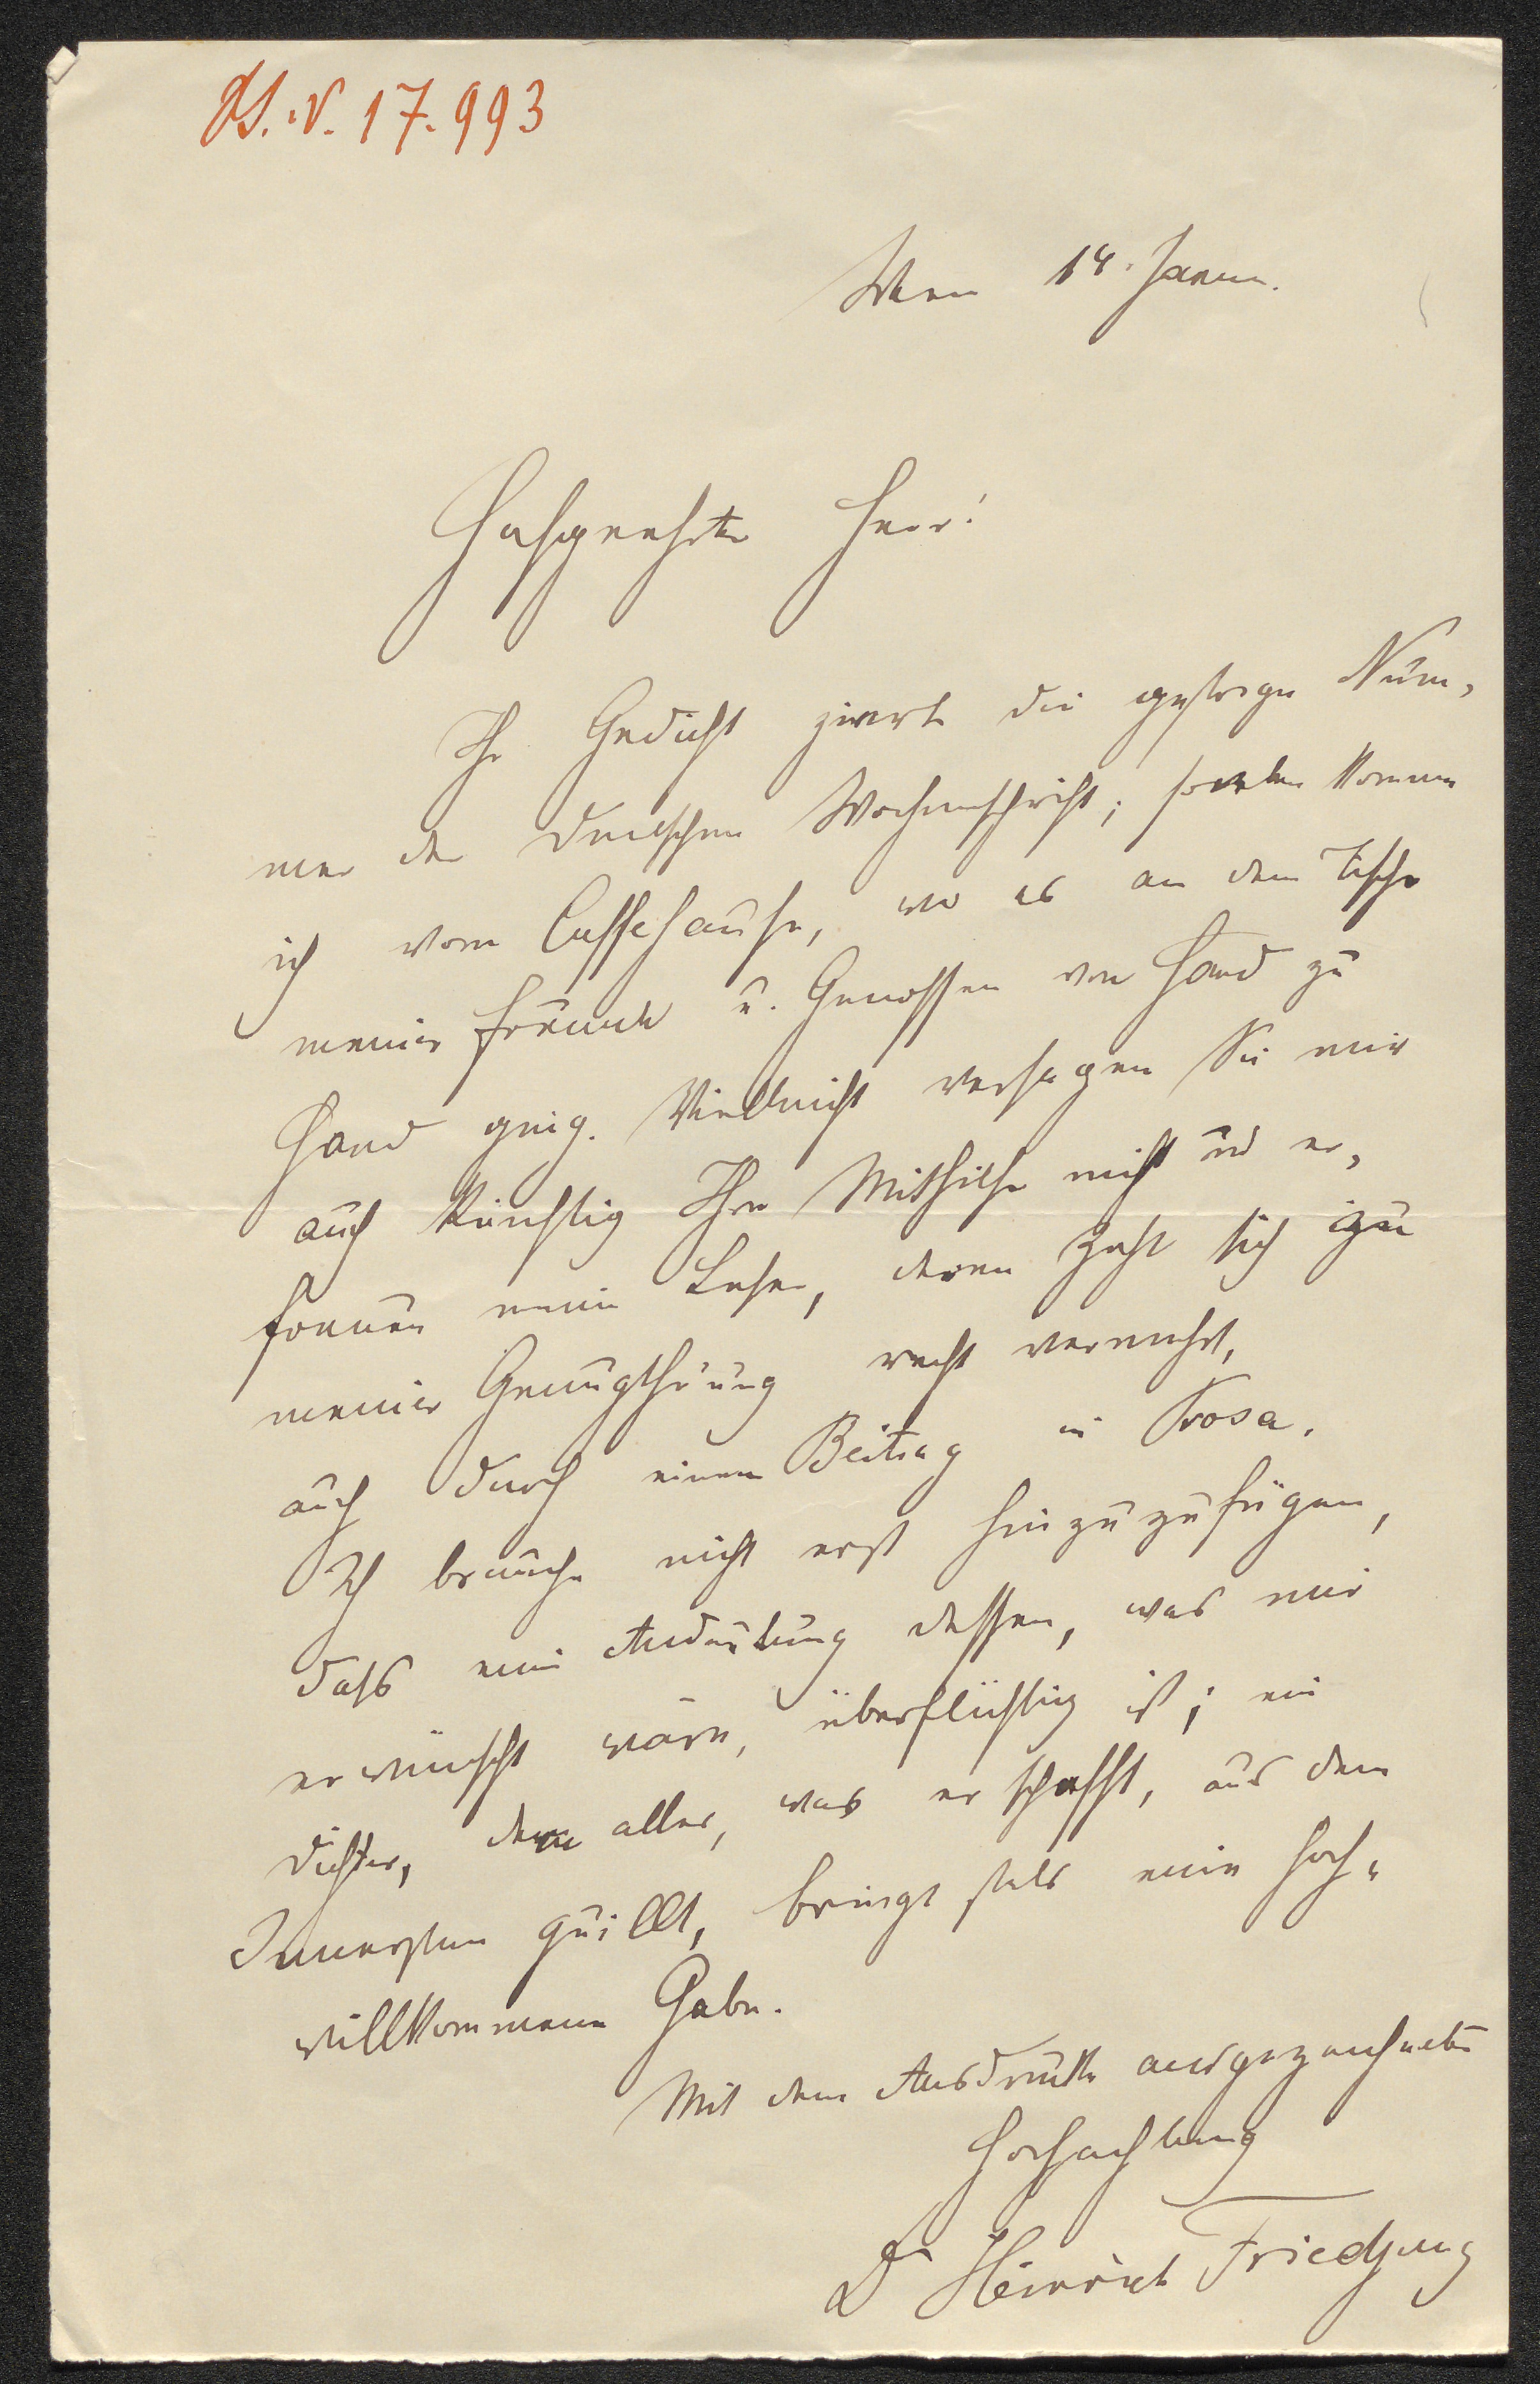 H.I.N. 17.993
Wien 14. Jann.
Hochgeehrter Herr!
Ihr Gedicht zierte die gestrige Num-
mer der Deutschen Wochenschrift; soeben komme
ich vom Caffehause, wo es an dem Tische
meiner Freunde u. Genossen von Hand zu
Hand ging. Vielleicht versagen Sie mir
auch künftig Ihre Mithilfe nicht und er-
freuen meine Leser, deren Zahl sich zu
meiner Genugthuung recht vermehrt,
auch durch einen Beitrag in Prosa.
Ich brauche nicht erst hinzuzufügen,
daß eine Andeutung dessen, was mir
erwünscht wäre, überflüssig ist; ein
Dichter, dem alles, was er schafft, aus dem
Innersten quillt, bringt stets eine hoch-
willkommene Gabe.
Mit dem Ausdrucke ausgezeichneter
Hochachtung
Dr Heinrich Friedjung